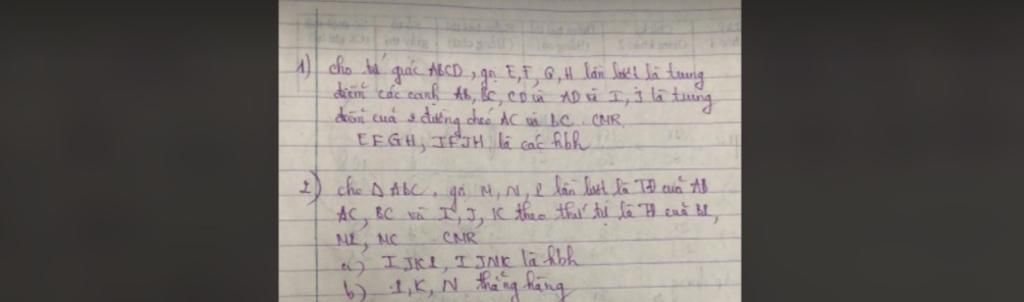 1) cho tứ giác ABCD, gọi E, F, G, H lần lượt là trung
điểm các cạnh AB, BC, CD và AD và I, J là trung
điểm của 2 đường chéo AC và BC. CMR
EFGH, IFJH là các hbh
2) cho Δ ABC. gọi M, N, L lần lượt là TĐ của AB
AC, BC và I, J, K theo thứ tự là TĐ của BL,
ML, MC CMR
a) IJKL, IJNK là hbh
b) L, K, N thẳng hàng